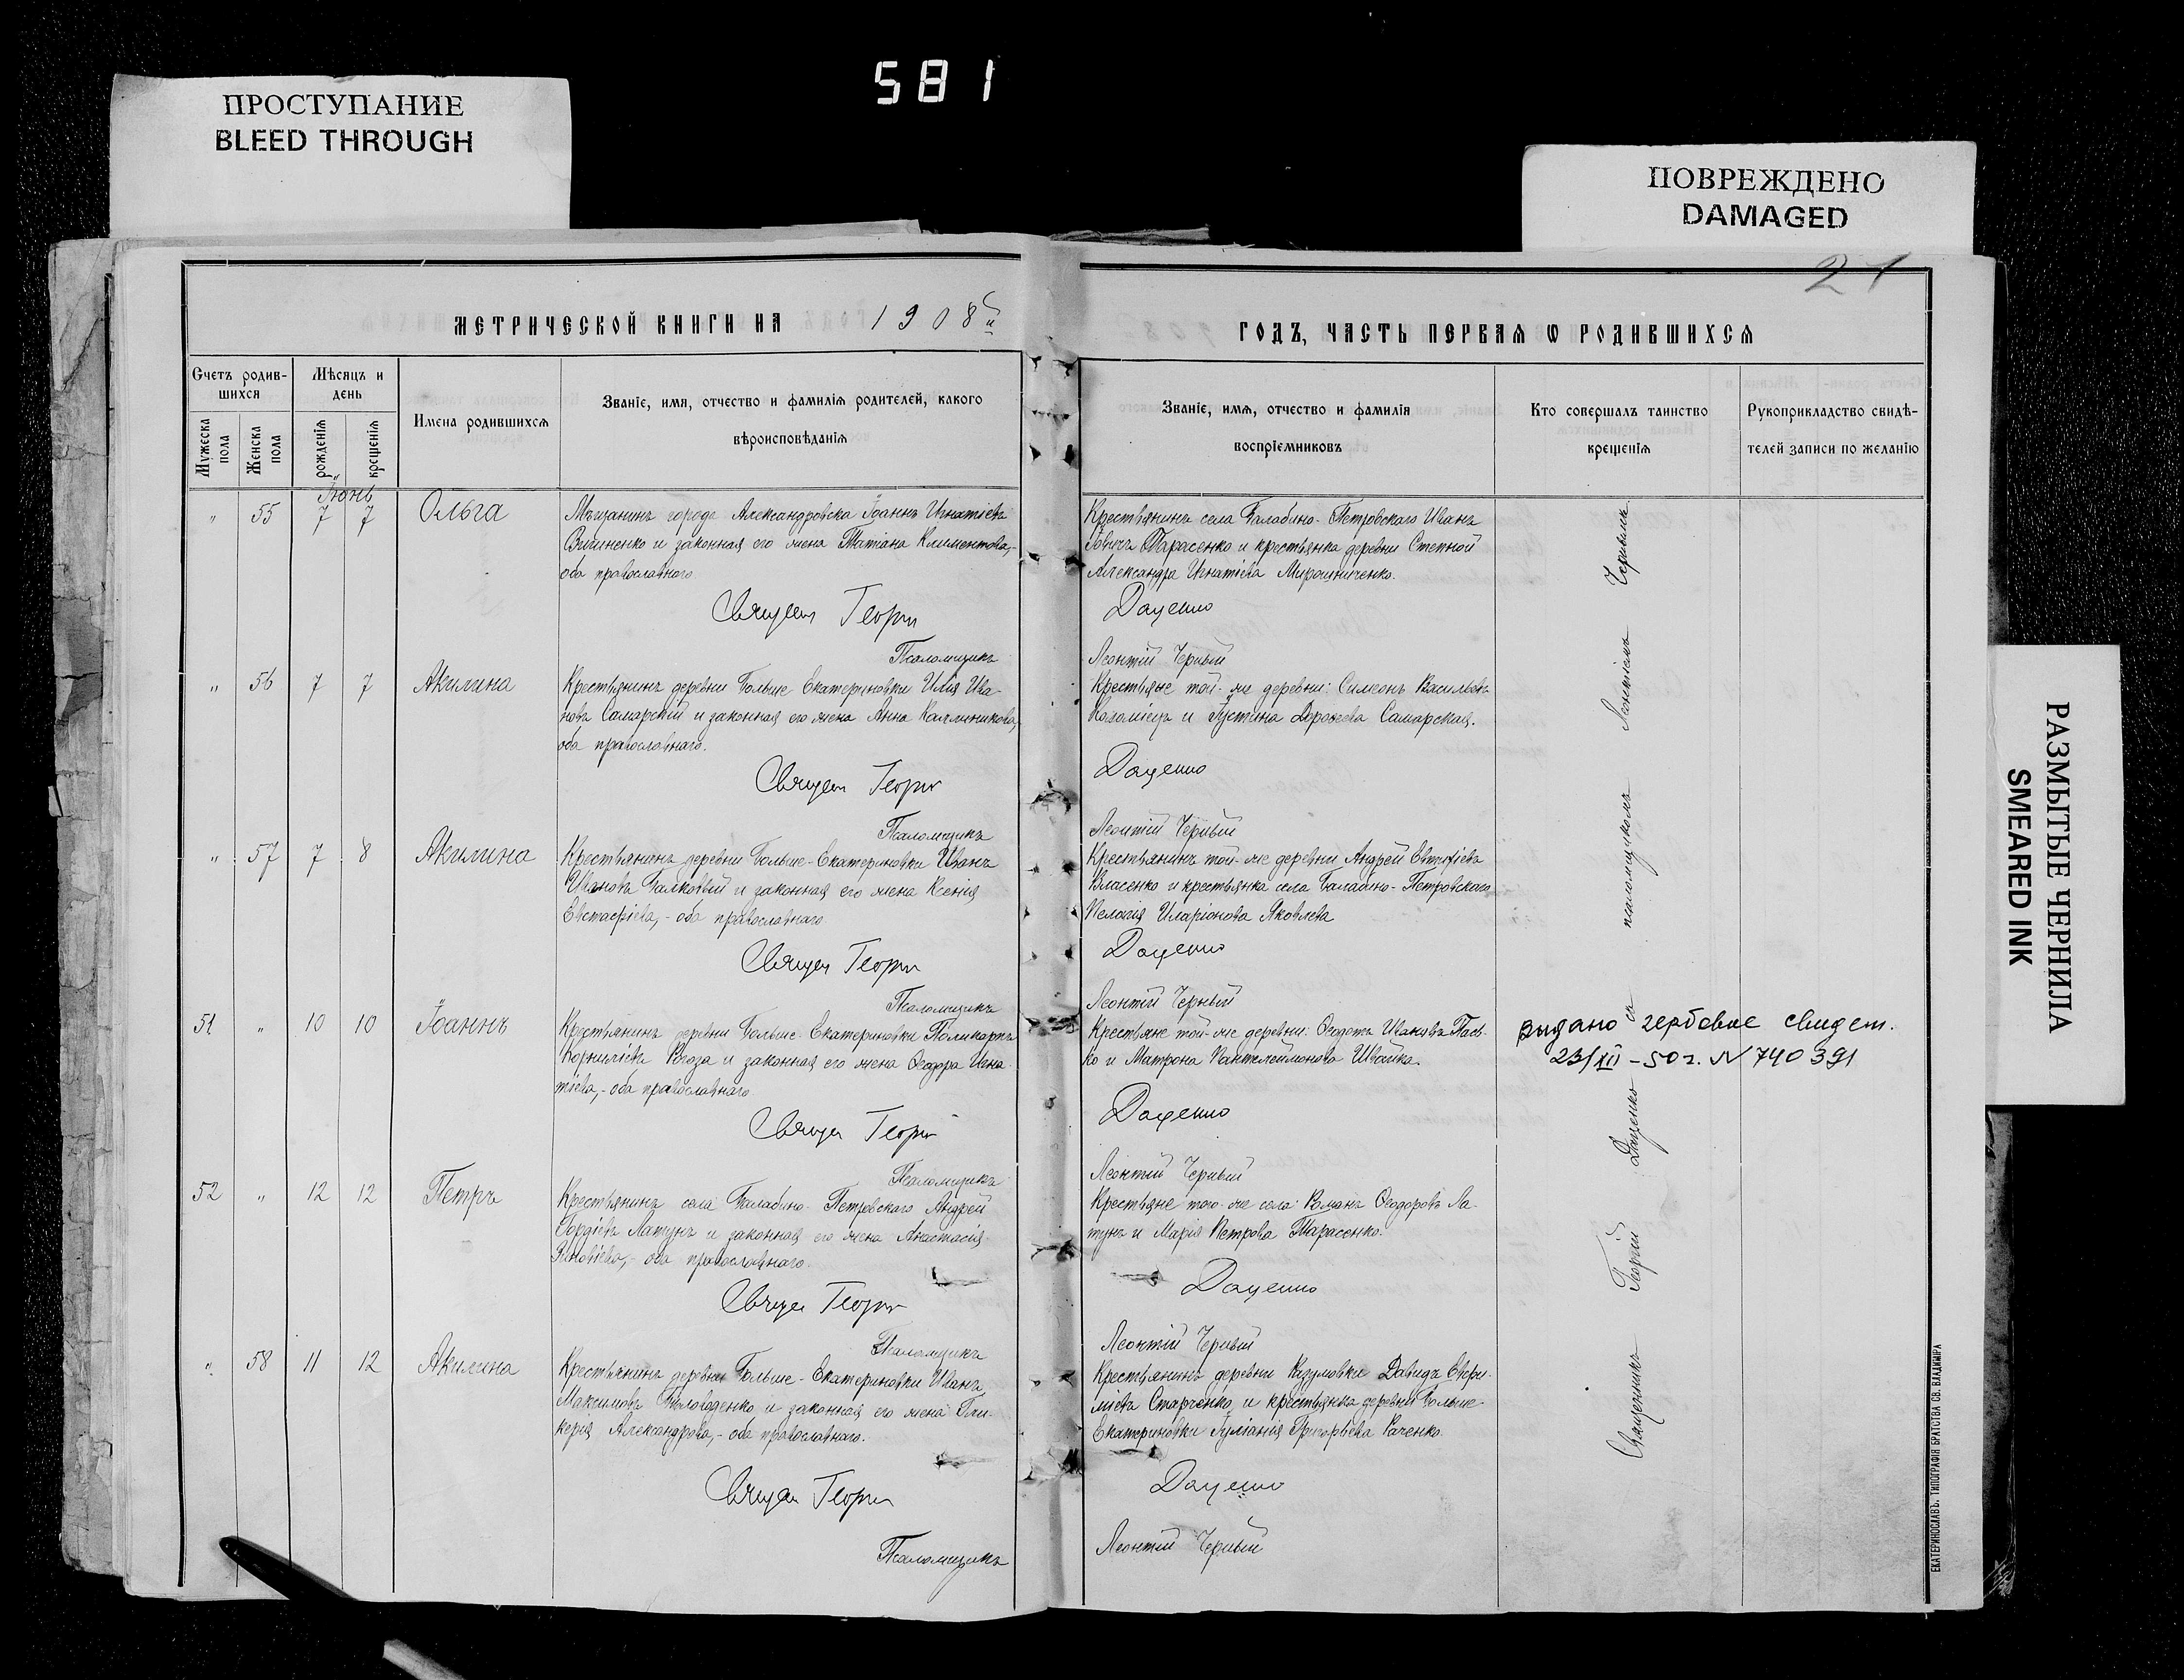 581
ПРОСТУПАНИЕ
BLEED THROUGH
ПОВРЕЖДЕНО
DAMAGED
РАЗМЫТЫЕ ЧЕРНИЛА
SMEARED INK
21
МЕТРИЧЕСКОЙ КНИГИ НА 1908й
ГОДЪ, ЧАСТЬ ПЕРВАЯ Ѡ РОДИВШИХСЯ
Счетъ родив-
шихся
Мужеска
пола
Женска
пола
Мѣсяцъ и
день
рожденія
крещенія
Имена родившихся
Званіе, имя, отчество и фамилія родителей, какого
вѣроисповѣданія
Званіе, имя, отчество и фамилія
воспріемниковъ
Кто совершалъ таинство
крещенія
Рукоприкладство свидѣ-
телей записи по желанію
Іюнь
" 55 7 7 Ольга
Мѣщанинъ города Александровска Іоаннъ Игнатіевъ
и законная его жена Татіана Климентова,-
оба православнаго
Священ Георги
Псаломщикъ
Крестьянинъ села Балабино-Петровскаго Иванъ
Тарасенко и крестьянка деревни Степной
Александра Игнатіева Мирошниченко.
Даценко
Леонтій Черный
" 56 7 7 Акилина
Крестьянинъ деревни Больше Екатериновки Илія Ива-
новъ Самарскій и законная его жена Анна Каллиникова,
оба православнаго.
Священ Георги
Псаломщикъ
Крестьяне той-же деревни: Симеонъ Васильевъ
Коломіецъ и Іустина Дороѳеева Самарская.
Даценко
Леонтій Черный
" 57 7 8 Акилина
Крестьянинъ деревни Больше-Екатериновки Иванъ
Ивановъ и законная его жена Ксенія
Евстафіева,- оба православнаго
Священ Георги
Псаломщикъ
Крестьянинъ той-же деревни Андрей
Власенко и крестьянка села Балабино-Петровскаго
Пелагія Иларіонова Яковлева
Даценко
Леонтій Черный
51 " 10 10 Іоаннъ
Крестьянинъ деревни Больше-Екатериновки Поликарпъ
Корниліевъ и законная его жена Ѳеодора Игна-
тіева,- оба православнаго
Священ Георги
Псаломщикъ
Крестьяне той-же деревни: Ѳеодотъ Ивановъ Пась-
ко и Матрона Пантелеймонова Швайка.
Даценко
Леонтій Черный
выдано гербовое свидет.
23/XII-50г. N 740391
52 " 12 12 Петръ
Крестьянинъ села Балабино-Петровскаго Андрей
Гордіевъ Латунъ и законная его жена Анастасія
Зиновіева,- оба православнаго.
Священ Георги
Псаломщикъ
Крестьяне того-же села: Романъ Ѳеодоровъ Ла-
тунъ и Марія Петрова Тарасенко.
Даценко
Леонтій Черный
" 58 11 12 Акилина
Крестьянинъ деревни Больше-Екатериновки Иванъ
Максимовъ и законная его жена Гли-
керія Александрова,- оба православнаго.
Священ Георги
Псаломщикъ
Крестьянинъ деревни Давидъ Евфи-
міевъ Старченко и крестьянка деревни Больше-
Екатериновки Іуліанія Григорьева
Даценко
Леонтій Черный
Священникъ Георгій Даценко съ псаломщикомъ Леонтіемъ Чернымъ
ЕКАТЕРИНОСЛАВЪ. ТИПОГРАФІЯ БРАТСТВА СВ. ВЛАДИМІРА